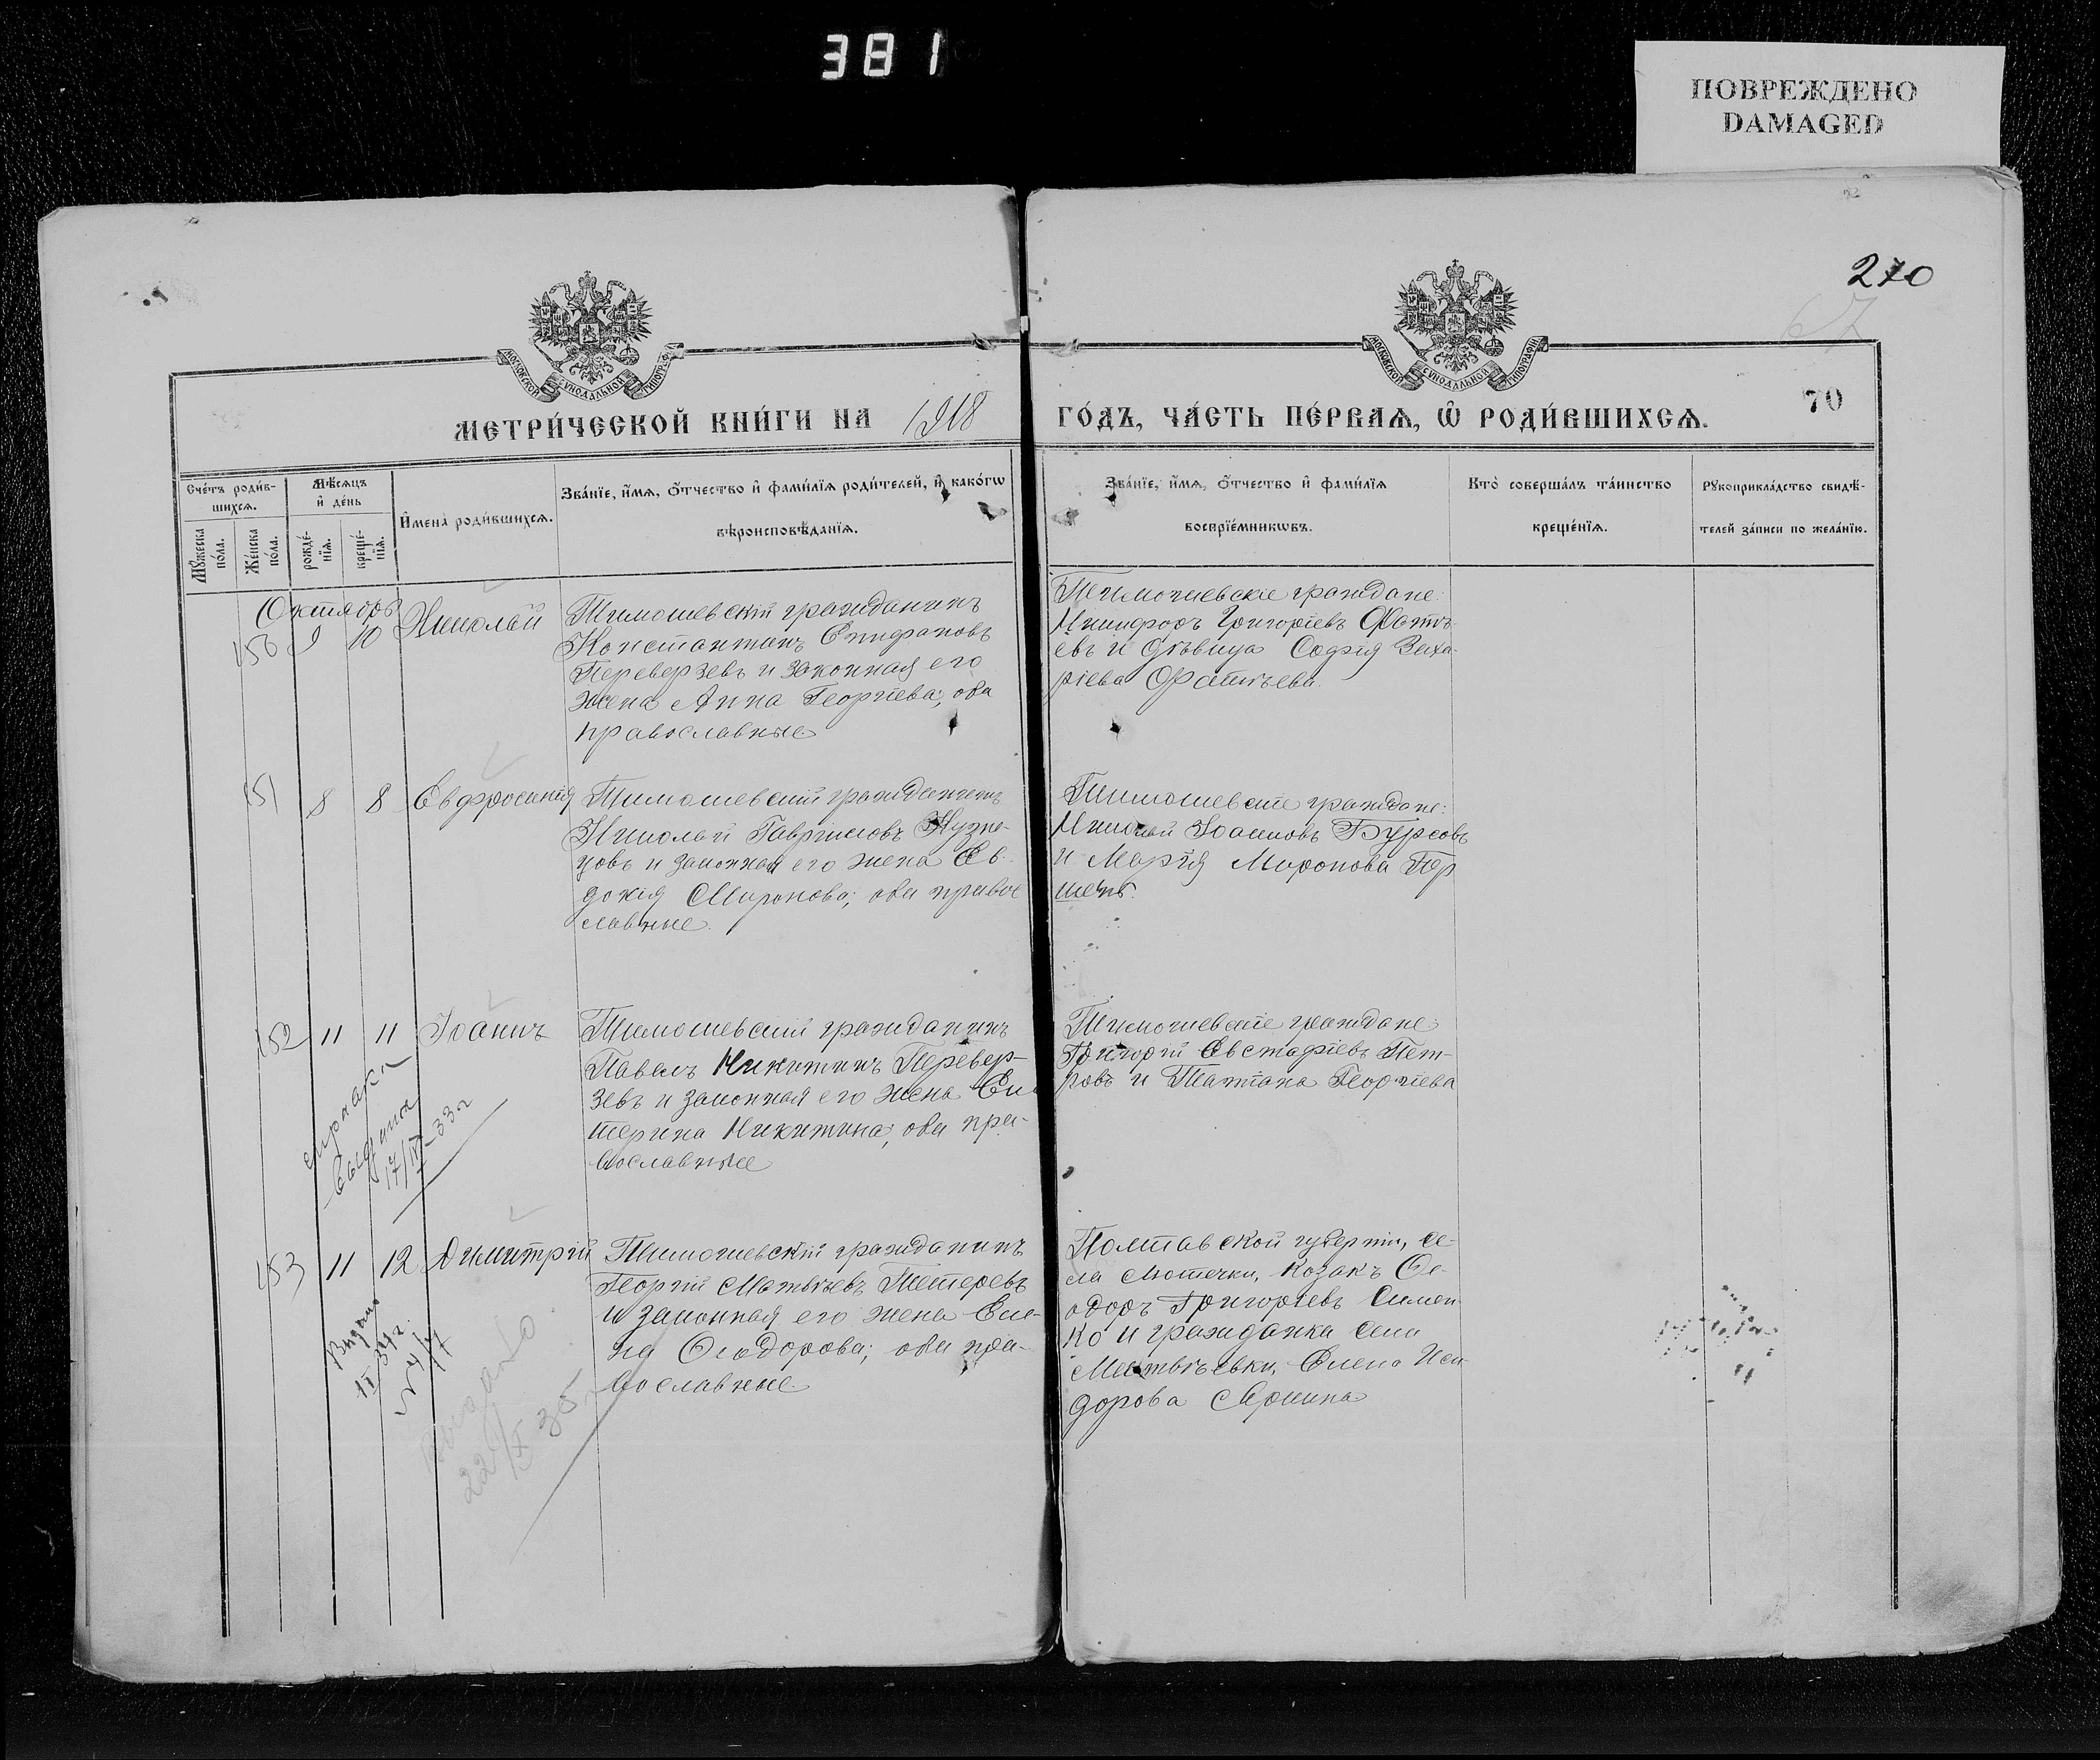 381
ПОВРЕЖДЕНО
DAMAGED
270
67
МОСКОВСКОЙ СѴНОДАЛЬНОЙ ТИПОГРАФІИ
МОСКОВСКОЙ СѴНОДАЛЬНОЙ ТИПОГРАФІИ
МЕТРИ́ЧЕСКОЙ КНИ́ГИ НА 1918
ГО́ДЪ, ЧА́СТЬ ПЕ́РВАѦ, Ѡ҆ РОДИ́ВШИХСѦ.
70
Сче́тъ роди́в-
шихсѧ.
Мѣ́сѧцъ
и҆ де́нь
И҆мена̀ роди́вшихсѧ.
Зва́нїе, и҆́мѧ, ѻ҆́тчество и҆ фами́лїѧ роди́телей, и҆ како́гѡ
вѣроисповѣ́данїѧ.
Мꙋ́жеска
по́ла.
Же́нска
по́ла.
рожде́-
нїѧ.
креще́-
нїѧ.
Зва́нїе, и҆́мѧ, ѻ҆́тчество и҆ фами́лїѧ
воспрїе́мникѡвъ.
Кто̀ соверша́лъ та́инство
креще́нїѧ.
Рꙋкоприкла́дство свидѣ́-
телей за́писи по жела́нїю.
Октябрь
150 9 10 Николай
Тимошевскій гражданинъ
Константинъ Епифановъ
Переверзевъ и законная его
жена Анна Георгіева; оба
православные
Тимошевскіе граждане:
Никифоръ Григоріевъ Фатѣ-
евъ и дѣвица Софія Заха-
ріева Фатѣева.
151 8 8 Евфросинія
Тимошевскій гражданинъ
Николай Гавріиловъ Кузне-
цовъ и законная его жена Ев-
докія Миронова; оба правос
славные.
Тимошевскіе граждане:
Николай Іоанновъ Бурсовъ
и Марія Миронова Гор
шенъ.
152 11 11 Іоаннъ
Тимошевскій гражданинъ
Павелъ Никитинъ Перевер-
зевъ и законная его жена Ека
терина Никитина; оба пра-
вославные
Тимошевскіе граждане:
Григорій Евстафіевъ Пет-
ровъ и Татіана Георгіева
справка
выдана
17/IV-33г
153 11 12 Димитрій
Тимошевскій гражданинъ
Георгій Матвѣевъ Тетеревъ
и законная его жена Еле-
на Ѳеодорова; оба пра-
вославные.
Полтавской губерніи, се-
ла Лютечки, козакъ Ѳе-
одоръ Григоріевъ Симен
ко и гражданка села
Матвѣевки, Елена Иси
дорова
Выдано
IX 34г.
Выдано
22/IX 35